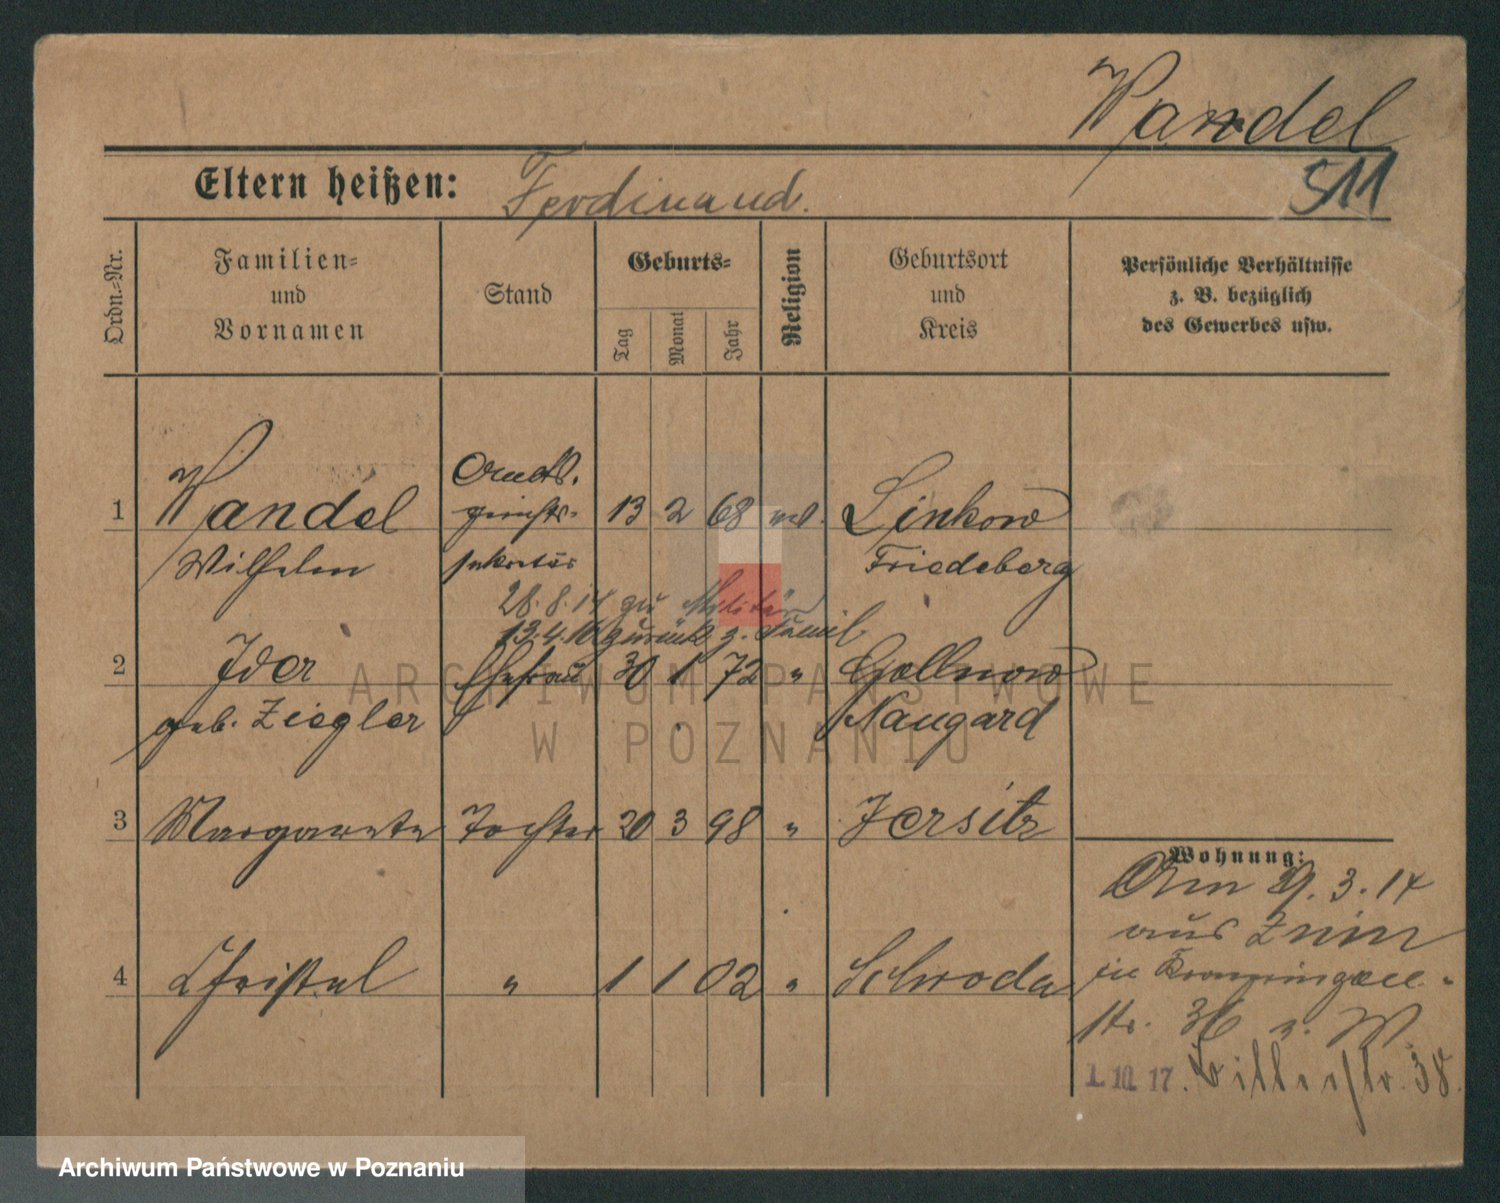 Wandel
Eltern heißen: Ferdinand.
511
Ordn.=Nr.
Familien=
und
Vornamen
Stand
Geburts=
Tag
Monat
Jahr
Religion
Geburtsort
und
Kreis
Persönliche Verhältnisse
z. B. bezüglich
des Gewerbes usw.
1 Wandel Amts. 13 2 68 Linkow
gerichts-
Wilhelm sekretär Friedeberg
28.8.14 zu Militär
13.4. zurück z. Famil
2 Ida Ehefrau 30 1 72 " Gollnow
geb. Ziegler Naugard
3 Margarete Tochter 20 3 98 " Jersitz
Wohnung:
Am 29.3.14
aus Znin
4 Christel " 1 1 02 " Schroda
in Kronprinzen-
str. 36 z. W
1. 10. 17. 38.
ARCHIWUM PAŃSTWOWE
W POZNANIU
Archiwum Państwowe w Poznaniu